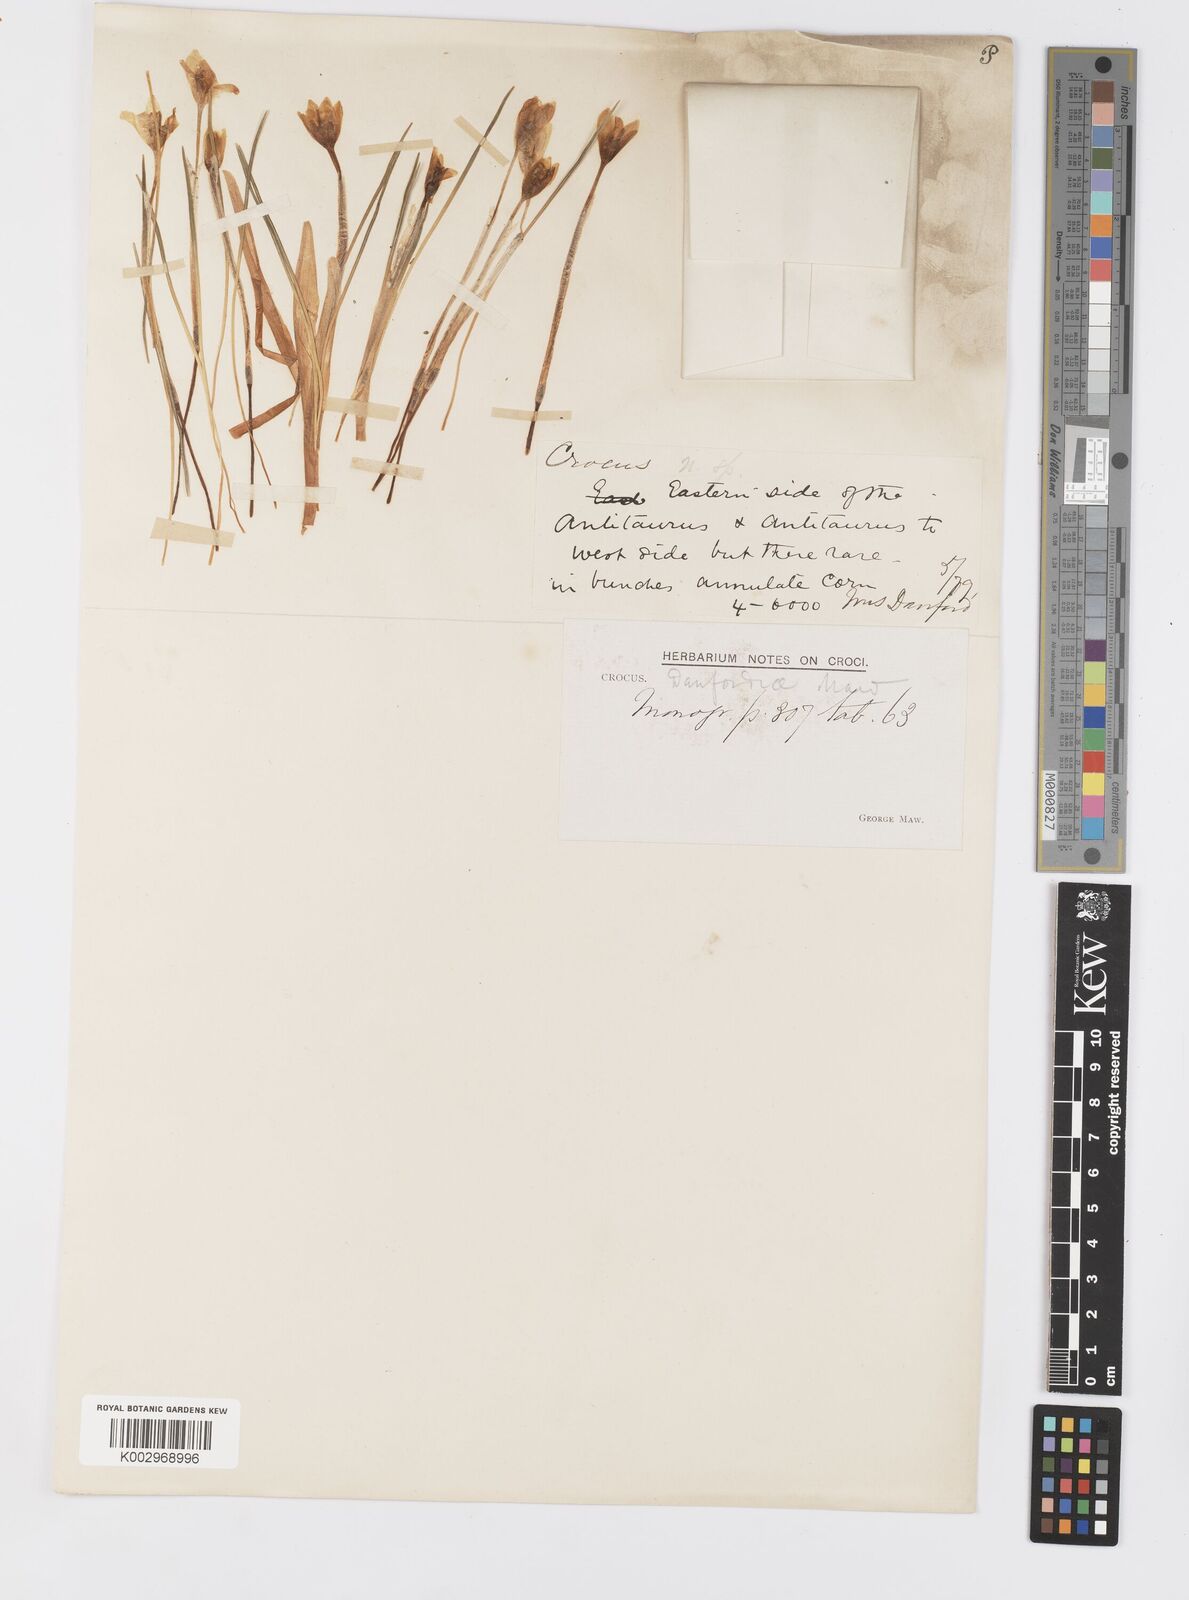 P
Crocus n. sp.
Eastern side of the
Antitaurus & Antitaurus to
west side but there rare
in bunches annulate corm
5/79
4-6000 Mrs Danford
HERBARIUM NOTES ON CROCI.
CROCUS. Danfordiæ Maw
Monogr. p. 307 tab. 63
GEORGE MAW.
ROYAL BOTANIC GARDENS KEW
K002968996
inches
Density
Don Williams
M000827
centimeters
Royal Botanic Gardens
Kew
0 1 2 3 4 5 6 7 8 9 10
cm
copyright reserved